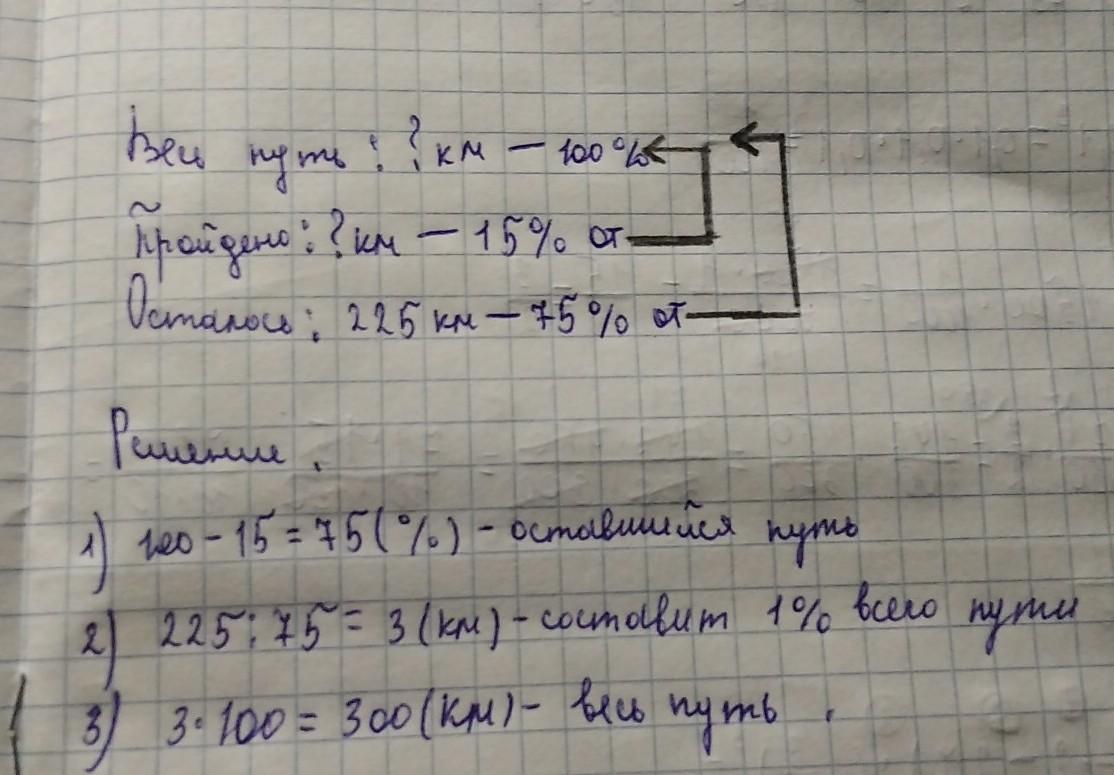 Весь путь: ? км – 100%
Пройдено: ? км – 15% от
Осталось: 225 км – 75% от
Решение.
1) 100 - 15 = 75 (%) - оставшийся путь
2) 225 : 75 = 3 (км) - составит 1% всего пути
3) 3 · 100 = 300 (км) - весь путь.